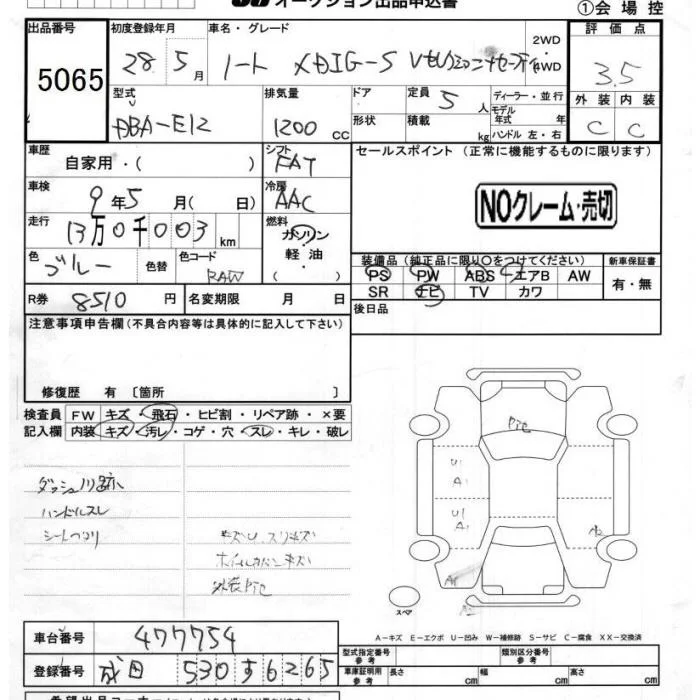 オークション出品申込書
①会場控
出品番号 初度登録年月 車名・グレード 2WD 4WD 評価点
5065 28 5月 ノート メダリG-S Vセレクション+セーフティ 3.5
型式 排気量 ドア 定員 5人 ディーラー・並行 外装 内装
DBA-E12 1200 CC 形状 積載 kg モデル年式 年 ハンドル 左・右 C C
車歴 自家用・( ) シフト FAT セールスポイント (正常に機能するものに限ります)
車検 9年5月( 日) 冷房 AAC NOクレーム・売切
走行 13万0千003km 燃料 ガソリン 軽油
色 ブルー 色替 色コード RAW
装備品(純正品に限り〇をつけてください) 新車保証書
PS PW ABS エアB AW 有・無
SR ナビ TV カワ
R券 8510円 名変期限 月 日 後日品
注意事項申告欄(不具合内容等は具体的に記入して下さい)
修復歴 有〔箇所 〕
検査員 FW キズ・飛石・ヒビ割・リペア跡・×要
記入欄 内装 キズ・汚レ・コゲ・穴・スレ・キレ・破レ
ダッシュノリ跡
ハンドルスレ
キズU スリキズ
ホイルカバーキズ
外装Pte
Pte
U1
A1
U1
A1
A2
A1
A2
スペア
A-キズ E-エクボ U-凹み W-補修跡 S-サビ C-腐食 XX-交換済
車台番号 477754 型式指定番号 参考 類別区分番号 参考
登録番号 成田 530 す6265 車庫証明用 参考 長さ cm 幅 cm 高さ cm